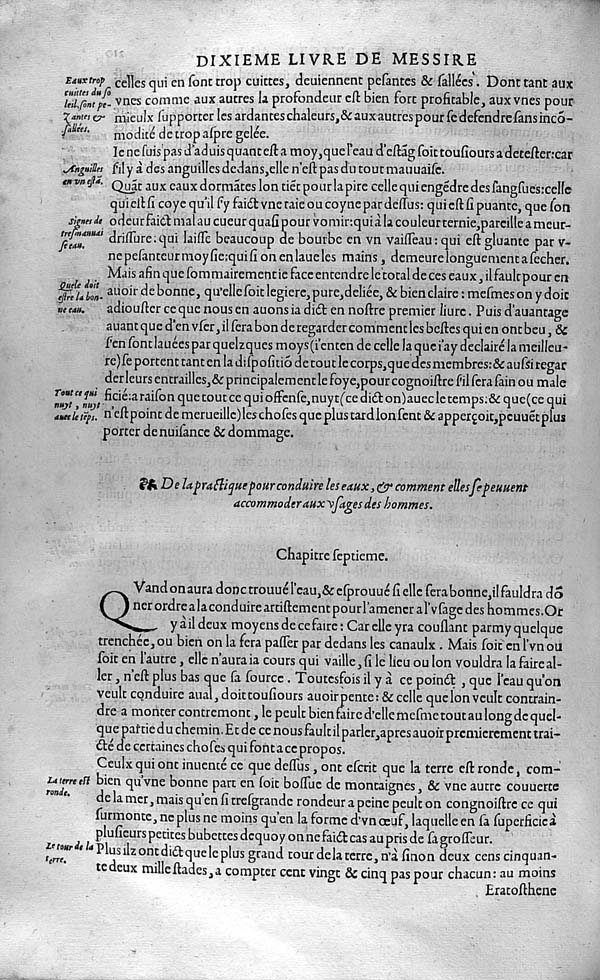 DIXIEME LIVRE DE MESSIRE
Eaux trop
cuittes du ſo
leil, ſont pe-
ſantes &
ſallées.
celles qui en ſont trop cuittes, deuiennent peſantes & ſallées. Dont tant aux
vnes comme aux autres la profondeur eſt bien fort profitable, aux vnes pour
mieulx ſupporter les ardantes chaleurs, & aux autres pour ſe defendre ſans incõ-
modité de trop aſpre gelée.
Ie ne ſuis pas d'aduis quant eſt a moy, que l'eau d'eſtãg ſoit touſiours a deteſter: car
Anguilles
en vn eſtã.
ſ'il y à des anguilles dedans, elle n'eſt pas du tout mauuaiſe.
Quãt aux eaux dormãtes lon tiẽt pour la pire celle qui engẽdre des ſangſues: celle
qui eſt ſi coye qu'il ſ'y faict vne taie ou coyne par deſſus: qui eſt ſi puante, que ſon
Signes de
treſmauuai
ſe eau.
odeur faict mal au cueur quaſi pour vomir: qui à la couleur ternie, pareille a meur-
driſſure: qui laiſſe beaucoup de bourbe en vn vaiſſeau: qui eſt gluante par v-
ne peſanteur moyſie: qui ſi on en laue les mains, demeure longuement a ſecher.
Mais afin que ſommairement ie face entendre le total de ces eaux, il fault pour en
Quele doit
eſtre la bon-
ne eau.
auoir de bonne, qu'elle ſoit legiere, pure, deliée, & bien claire: meſmes on y doit
adiouſter ce que nous en auons ia dict en noſtre premier liure. Puis d'auantage
auant que d'en vſer, il ſera bon de regarder comment les beſtes qui en ont beu, &
ſ'en ſont lauées par quelzques moys (i'enten de celle la que i'ay declairé la meilleu-
re) ſe portent tant en la diſpoſitiõ de tout le corps, que des membres: & auſſi regar
der leurs entrailles, & principalement le foye, pour cognoiſtre ſ'il ſera ſain ou male
Tout ce qui
nuyt, nuyt
auec le tẽps.
ficié: a raiſon que tout ce qui offenſe, nuyt (ce dict on) auec le temps: & que (ce qui
n'eſt point de merueille) les choſes que plus tard lon ſent & apperçoit, peuuẽt plus
porter de nuiſance & dommage.
De la practique pour conduire les eaux, & comment elles ſe peuuent
accommoder aux vſages des hommes.
Chapitre ſeptieme.
QVand on aura donc trouué l'eau, & eſprouué ſi elle ſera bonne, il fauldra dõ
ner ordre a la conduire artiſtement pour l'amener a l'vſage des hommes. Or
y à il deux moyens de ce faire: Car elle yra coulant parmy quelque
trenchée, ou bien on la fera paſſer par dedans les canaulx. Mais ſoit en l'vn ou
ſoit en l'autre, elle n'aura ia cours qui vaille, ſi le lieu ou lon vouldra la faire al-
ler, n'eſt plus bas que ſa ſource. Toutesfois il y à ce poinct, que l'eau qu'on
veult conduire aual, doit touſiours auoir pente: & celle que lon veult contrain-
dre a monter contremont, le peult bien faire d'elle meſme tout au long de quel-
que partie du chemin. Et de ce nous fault il parler, apres auoir premierement trai-
cté de certaines choſes qui font a ce propos.
Ceulx qui ont inuenté ce que deſſus, ont eſcrit que la terre eſt ronde, com-
La terre eſt
ronde.
bien qu'vne bonne part en ſoit boſſue de montaignes, & vne autre couuerte
de la mer, mais qu'en ſi treſgrande rondeur a peine peult on congnoiſtre ce qui
ſurmonte, ne plus ne moins qu'en la forme d'vn œuf, laquelle en ſa ſuperficie à
pluſieurs petites bubettes dequoy on ne faict cas au pris de ſa groſſeur.
Le tour de la
terre.
Plus ilz ont dict que le plus grand tour de la terre, n'à ſinon deux cens cinquan-
te deux mille ſtades, a compter cent vingt & cinq pas pour chacun: au moins
Eratoſthene